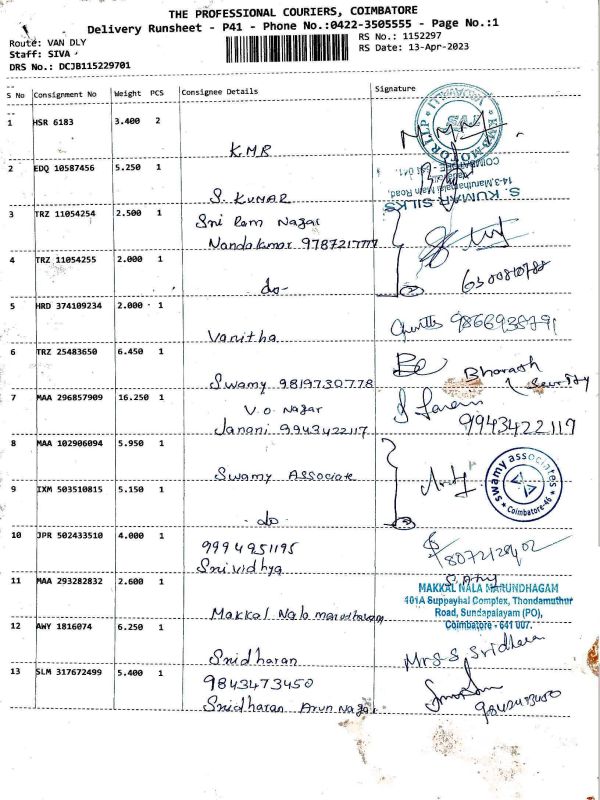 THE PROFESSIONAL COURIERS, COIMBATORE
Delivery Runsheet - P41 - Phone No.:0422-3505555 - Page No.:1
Route: VAN DLY
Staff: SIVA
DRS No.: DCJB115229701
RS No.: 1152297
RS Date: 13-Apr-2023
S No Consignment No Weight PCS Consignee Details Signature
1 HSR 6183 3.400 2
KMR
KMB MOTOR LLP
2 EDQ 10587456 5.250 1
S. KUMAR
S. KUMAR SILKS
14-3, Maruthamalai Main Road,
3 TRZ 11054254 2.500 1
Sri Ram Nagar
Nandakumar
4 TRZ 11054255 2.000 1
do-
5 HRD 374109234 2.000 1
Vanitha
6 TRZ 25483650 6.450 1
Swamy 9819730778
Bharath
Security
7 MAA 296857909 16.250 1
V.O. Nagar
Janani 9943422117
9943422117
8 MAA 102906094 5.950 1
Swamy Associate
swamy associates
Coimbatore-46
9 IXM 503510815 5.150 1
do
10 JPR 502433510 4.000 1
9994951195
Srividhya
11 MAA 293282832 2.600 1
Makkal Nala marudhagam
MAKKAL NALA MARUNDHAGAM
401A Suppayhal Complex, Thondamuthur
Road, Sundapalayam (PO),
Coimbatore - 641 007.
12 AWY 1816074 6.250 1
Sridharan
Mrs. S Sridhara
13 SLM 317672499 5.400 1
9843473450
Sridharan Arun Nagar